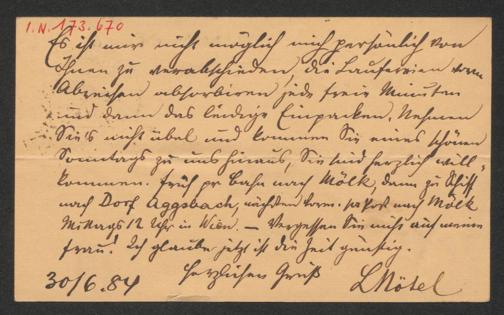 I.N. 173.670
Es ist mir nicht möglich mich persönlich von
Ihnen zu verabschieden, die Laufereien vorm
Abreisen absorbiren jede freie Minuten
und dann das leidige Einpacken. Nehmen
Sie's nicht übel und kommen Sie eines schönen
Sonntags zu uns hinaus, Sie sind herzlich will-
kommen. Früh pr Bahn nach Mölk, dann zu Schiff
nach Dorf Aggsbach, nach Mölk
Mittags 12 Uhr in Wien. — Vergessen Sie nicht auf meine
Frau! Ich glaube jetzt ist die Zeit günstig.
Herzlichen Gruß
30/6.84 LNötel